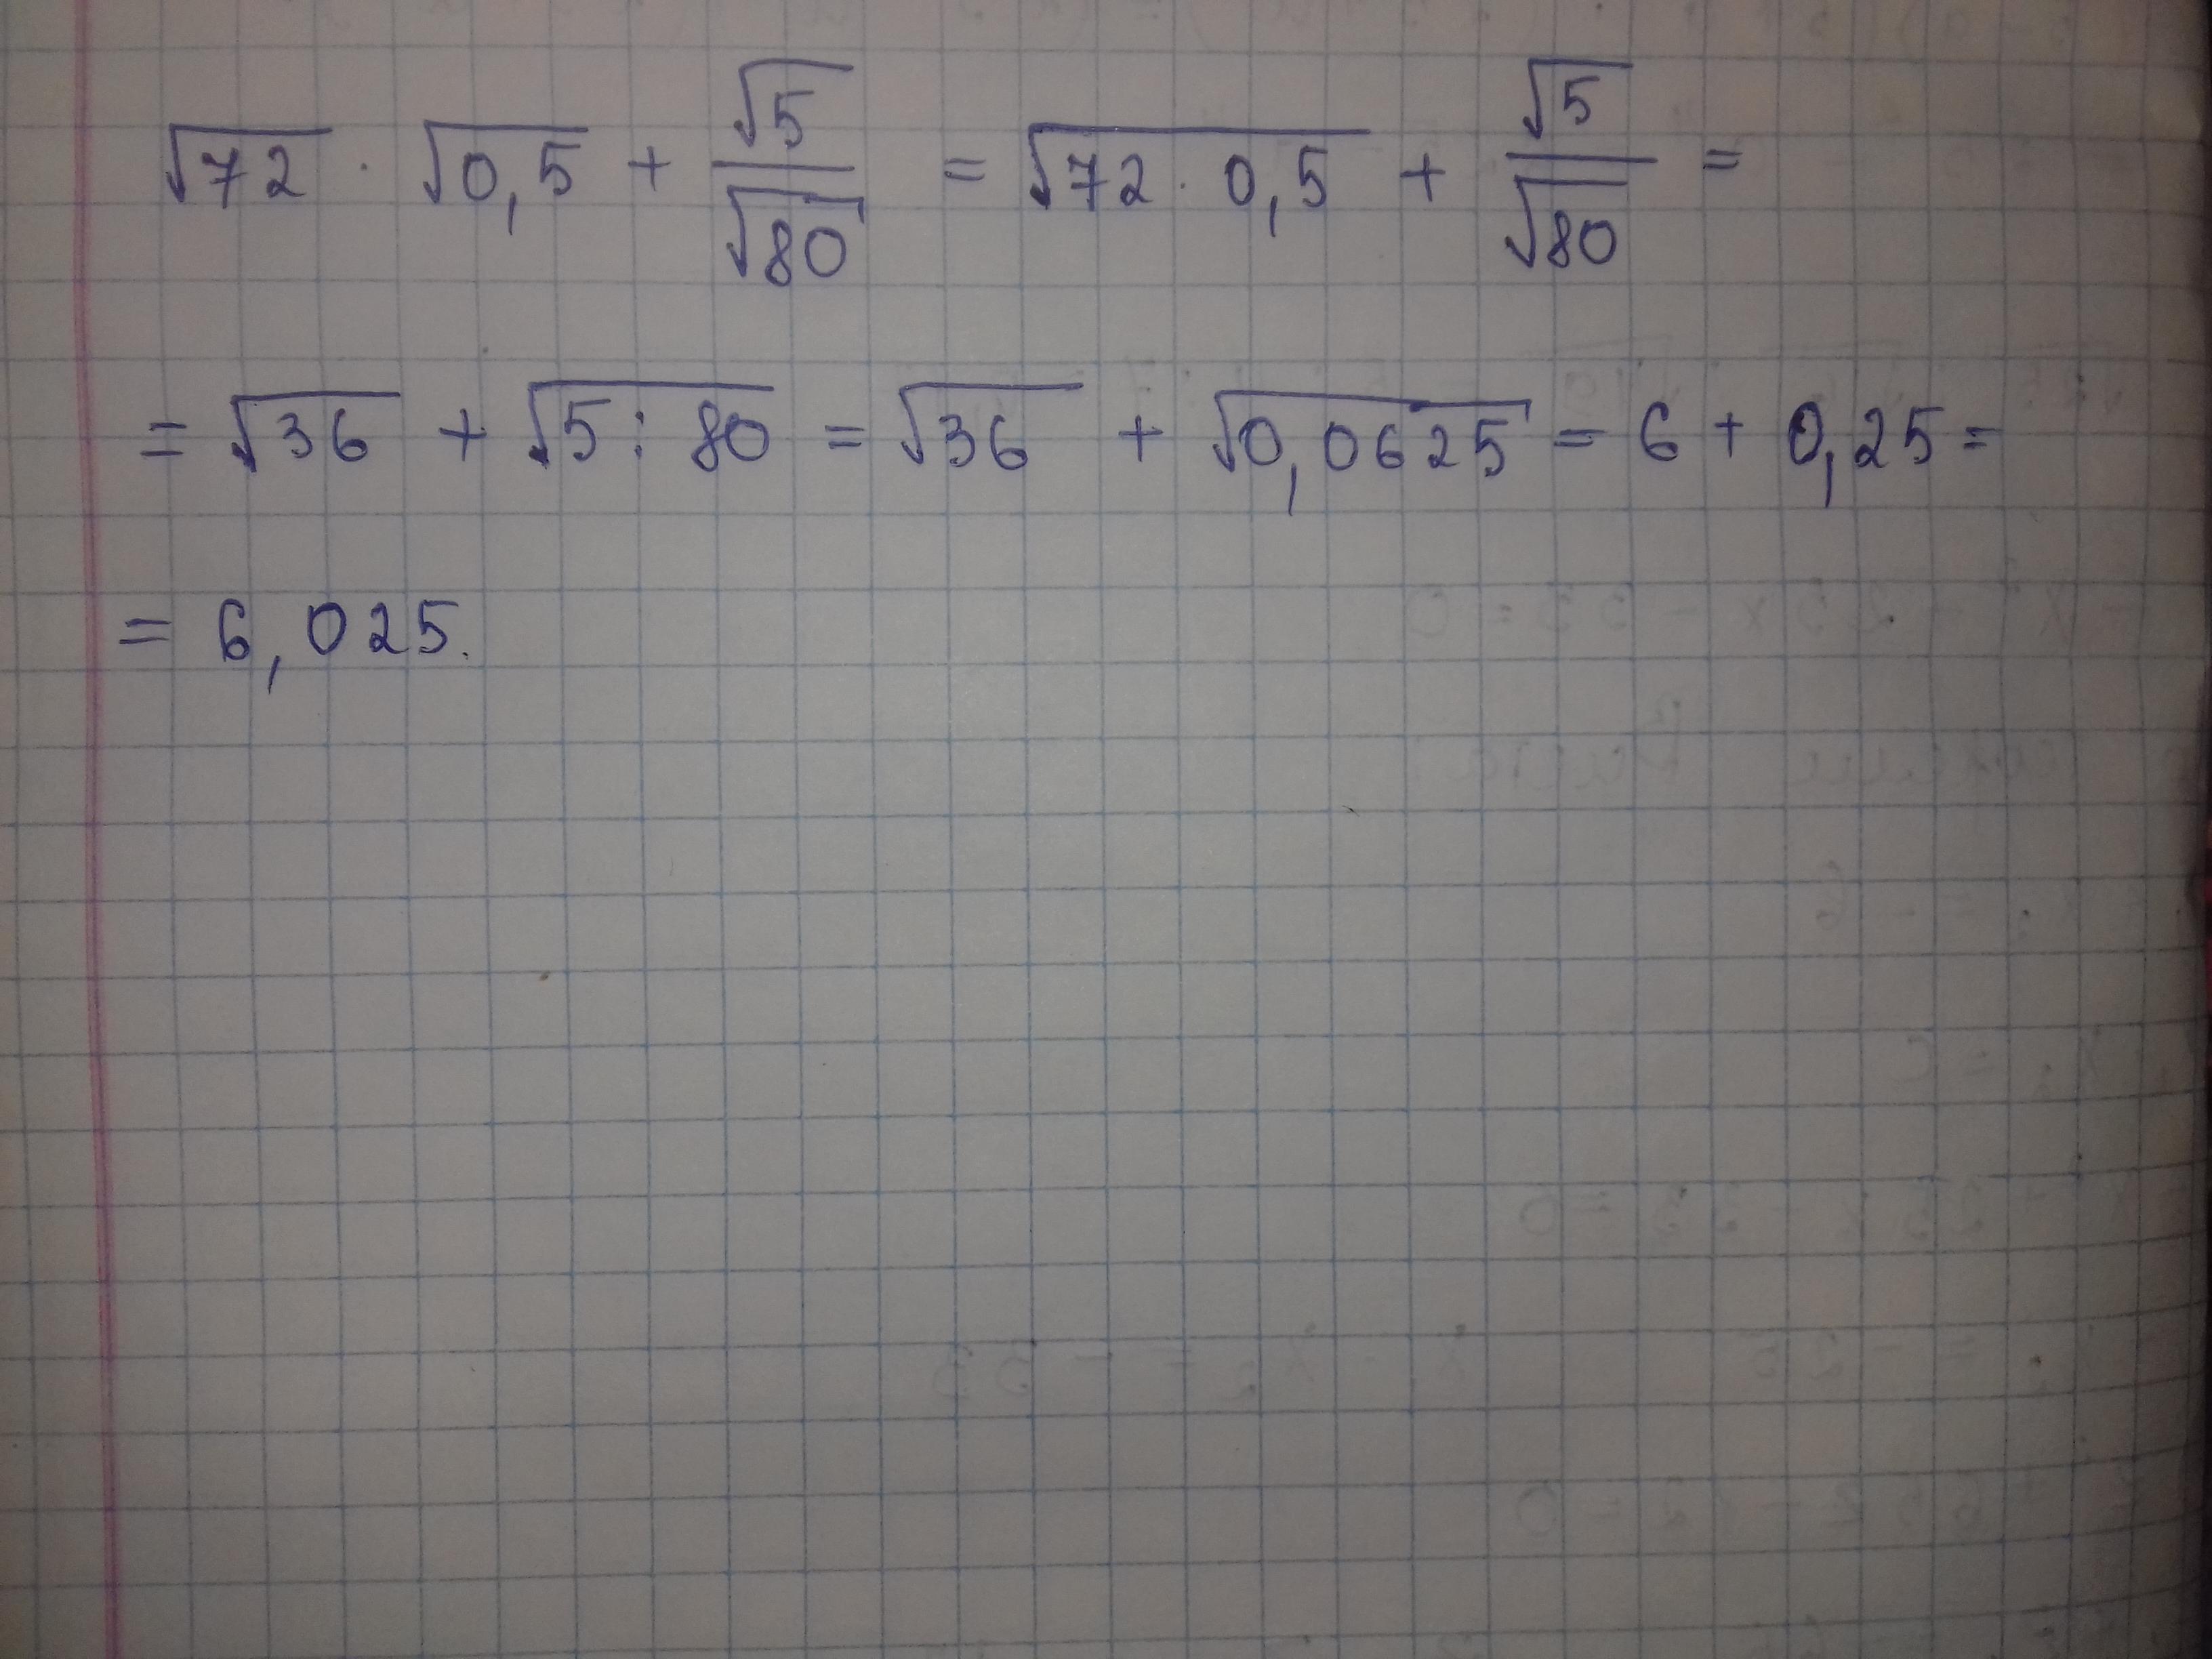 √72 · √0,5 + √5/√80 = √72 · 0,5 + √5/√80 =
= √36 + √5 : 80 = √36 + √0,0625 = 6 + 0,25 =
= 6,025.